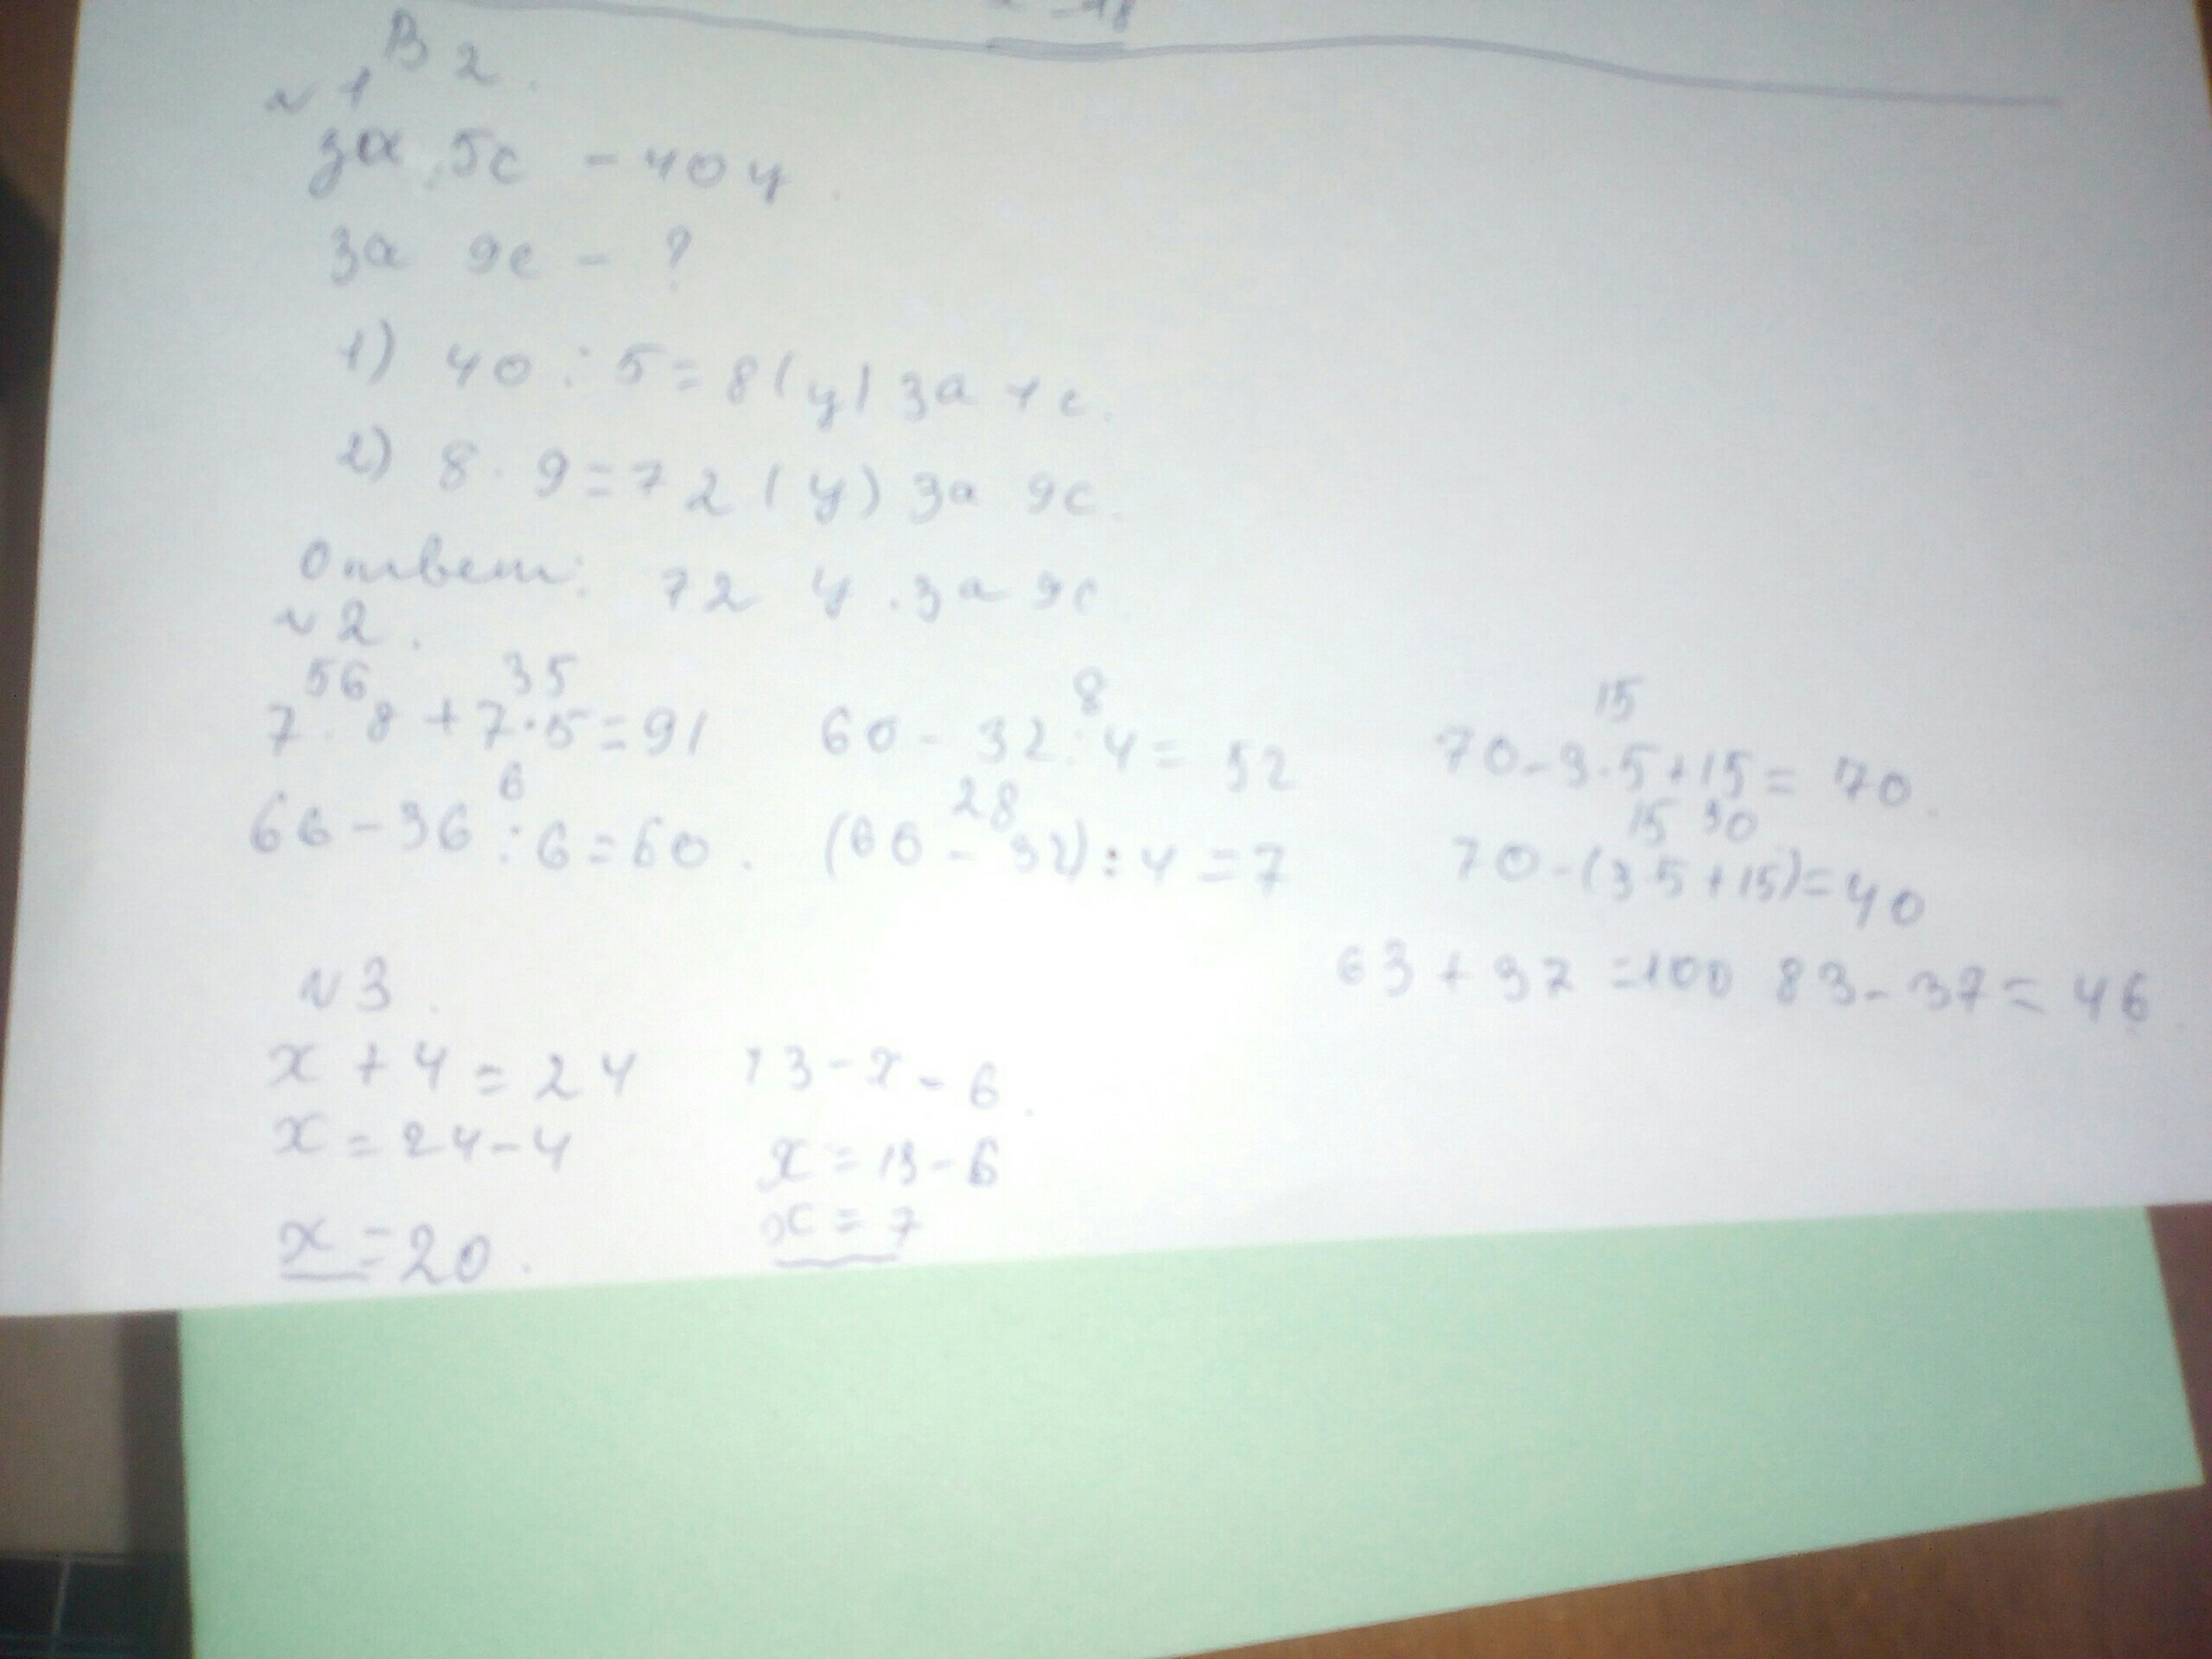 -18
В 2.
№1
за 5с - 40 у
за 9с - ?
1) 40 : 5 = 8 (у) за 1с.
2) 8 · 9 = 72 (у) за 9с.
Ответ: 72 у. за 9с.
№2.
56 35 8 15
7 · 8 + 7 · 5 = 91 60 - 32 : 4 = 52 70 - 3 · 5 + 15 = 70.
6 28 15 30
66 - 36 : 6 = 60. (60 - 32) : 4 = 7 70 - (3 · 5 + 15) = 40
63 + 37 = 100 83 - 37 = 46.
№3.
x + 4 = 24 13 - x = 6.
x = 24 - 4 x = 13 - 6
x = 20. x = 7